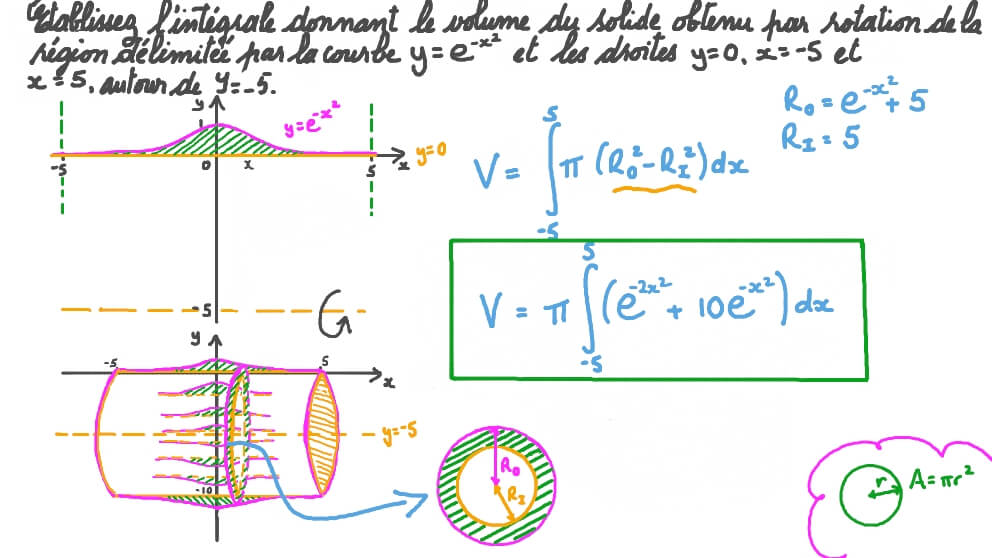 Etablissez l'intégrale donnant le volume du solide obtenu par rotation de la
région délimitée par la courbe y=e^-x² et les droites y=0, x=-5 et
x=5, autour de y=-5.
y
1
y=e^-x²
R₀=e^-x²+5
R_I=5
-5
0
x
5
x
y=0
V= ∫_-5^5 π (R₀²-R_I²)dx
-5
V = π ∫_-5^5 (e^-2x² + 10e^-x²) dx
y
-5
5
x
y=-5
-10
R₀
R_I
r
A=πr²